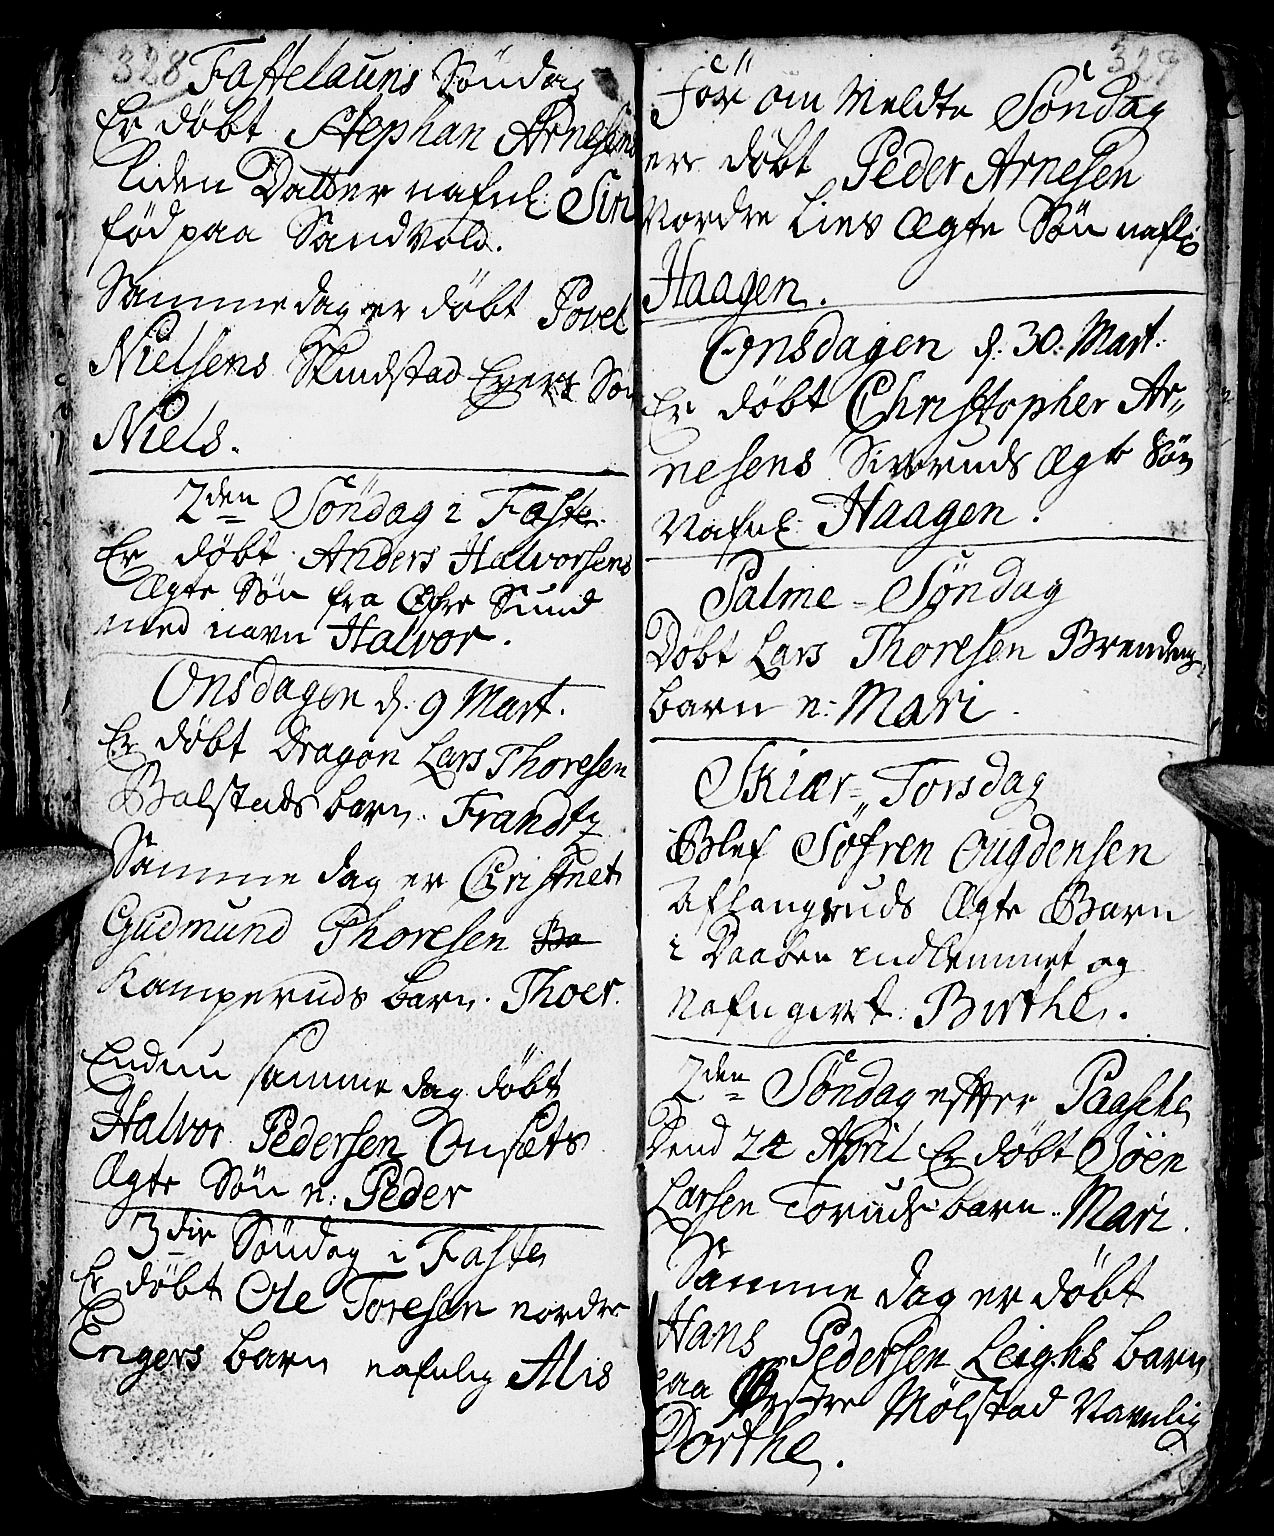 328
Fastelauns Søndag
Er døbt Stephan Arnesens
liden Datter nafnl. Siri
fød paa Sandvold.
Samme dag er døbt Povel
Nielsens Skindstad Egers Søn
Niels.
2den Søndag i Faste
Er døbt Anders Halvorsens
Ægte Søn fra Øfre Sund
med navn Halvor.
Onsdagen d. 9 Mart.
Er døbt Dragon Lars Thoresen
Bolstads barn. Frandtz
Samme dag er Christnet
Gudmund Thoresen Ba
Kamperuds barn. Thoer.
Endnu samme dag døbt
Halvor Pedersen Onsæts
Ægte Søn n: Peder
3die Søndag i Faste
Er døbt Ole Toresen nordre
Engers barn nafnlig Alis
329
Før om Meldte Søndag
er døbt Peder Arnesen
Nordre Lies Ægte Søn nafl:
Haagen.
Onsdagen d. 30. Mart.
Er døbt Christopher Ar-
nesens Siveruds Ægte Søn
Nafnl. Haagen.
Palme-Søndag
Døbt Lars Thoresen Brenden
barn n: Mari
Skiær-Torsdag
Blef Søfren Ougdensen
Aslangruds Ægte Barn
i Daaben indlemmet og
Nafn givet: Birthe.
2den Søndag effter Paasche
Dend 24 April Er døbt Joen
Larsen Toruds barn. Mari.
Samme dag er døbt
Hans Pedersen Leighs barn
paa Østre Mølstad Navnlig
Dorthe.